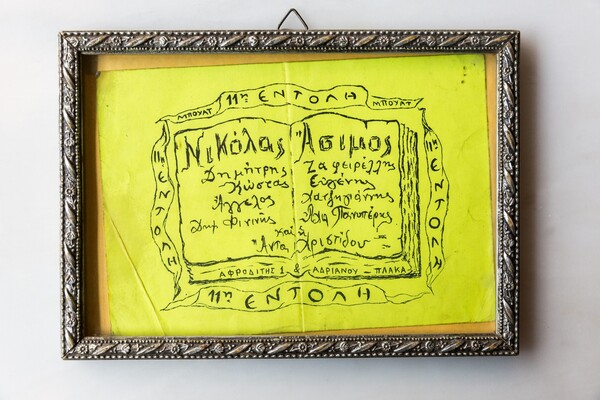 ΜΠΟΥΑΤ 11η ΕΝΤΟΛΗ ΜΠΟΥΑΤ
11η ΕΝΤΟΛΗ
Νικόλας Άσιμος
Δημήτρης Ζαφειρέλλης
Κώστας Ευγένης
Άγγελος Χατζηγιάννης
Δημ
και η
Άντα Αριστίδου
ΑΦΡΟΔΙΤΗΣ 1 & ΑΔΡΙΑΝΟΥ - ΠΛΑΚΑ
11η ΕΝΤΟΛΗ
11η ΕΝΤΟΛΗ